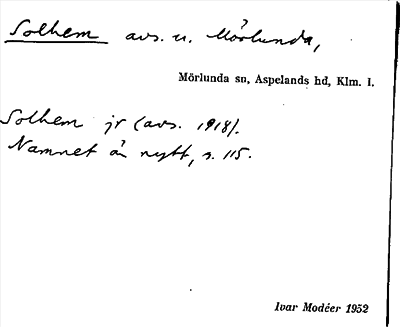 Solhem avs. u. Mörlunda,
Mörlunda sn, Aspelands hd, Klm. l.
Solhem jr (avs. 1918).
Namnet är nytt, s. 115.
Ivar Modéer 1952